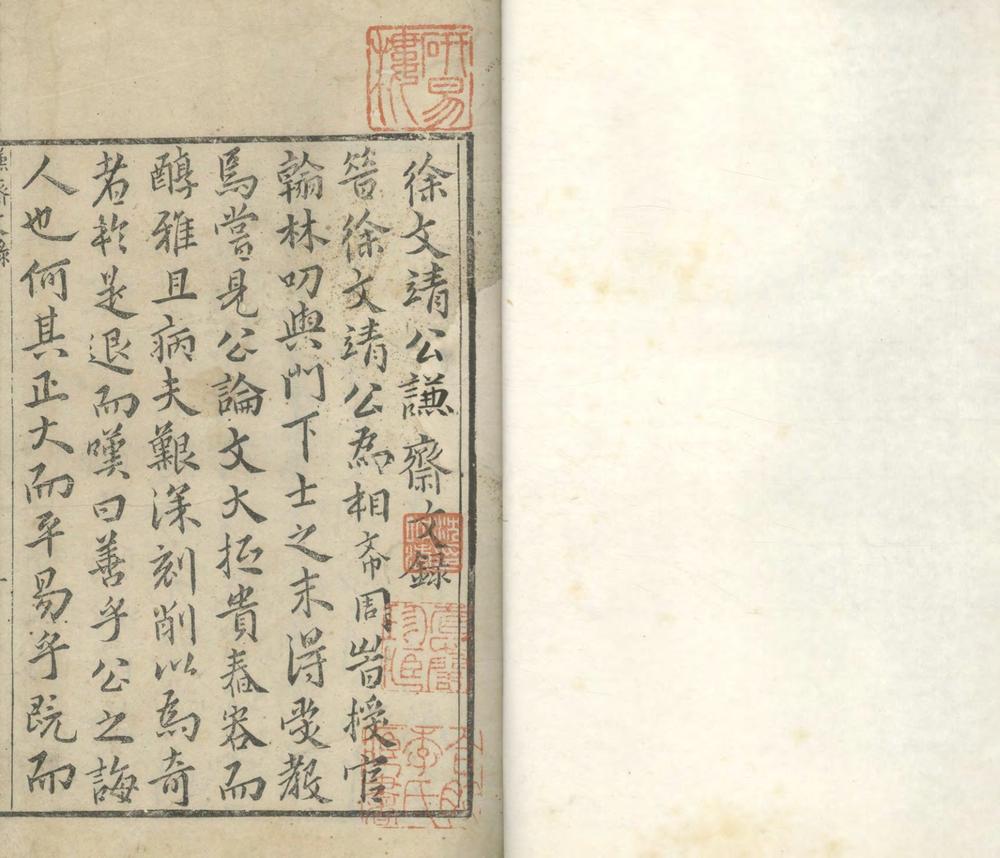 徐文靖公謙齋文錄
昔徐文靖公為相而周時授官
翰林叨與門下士之末得受教
焉嘗見公論文大抵貴舂容而
醇雅且病夫艱深刻削以為奇
者於是退而嘆曰善乎公之誨
人也何其正大而平易乎既而
謙齋文錄
研易樓